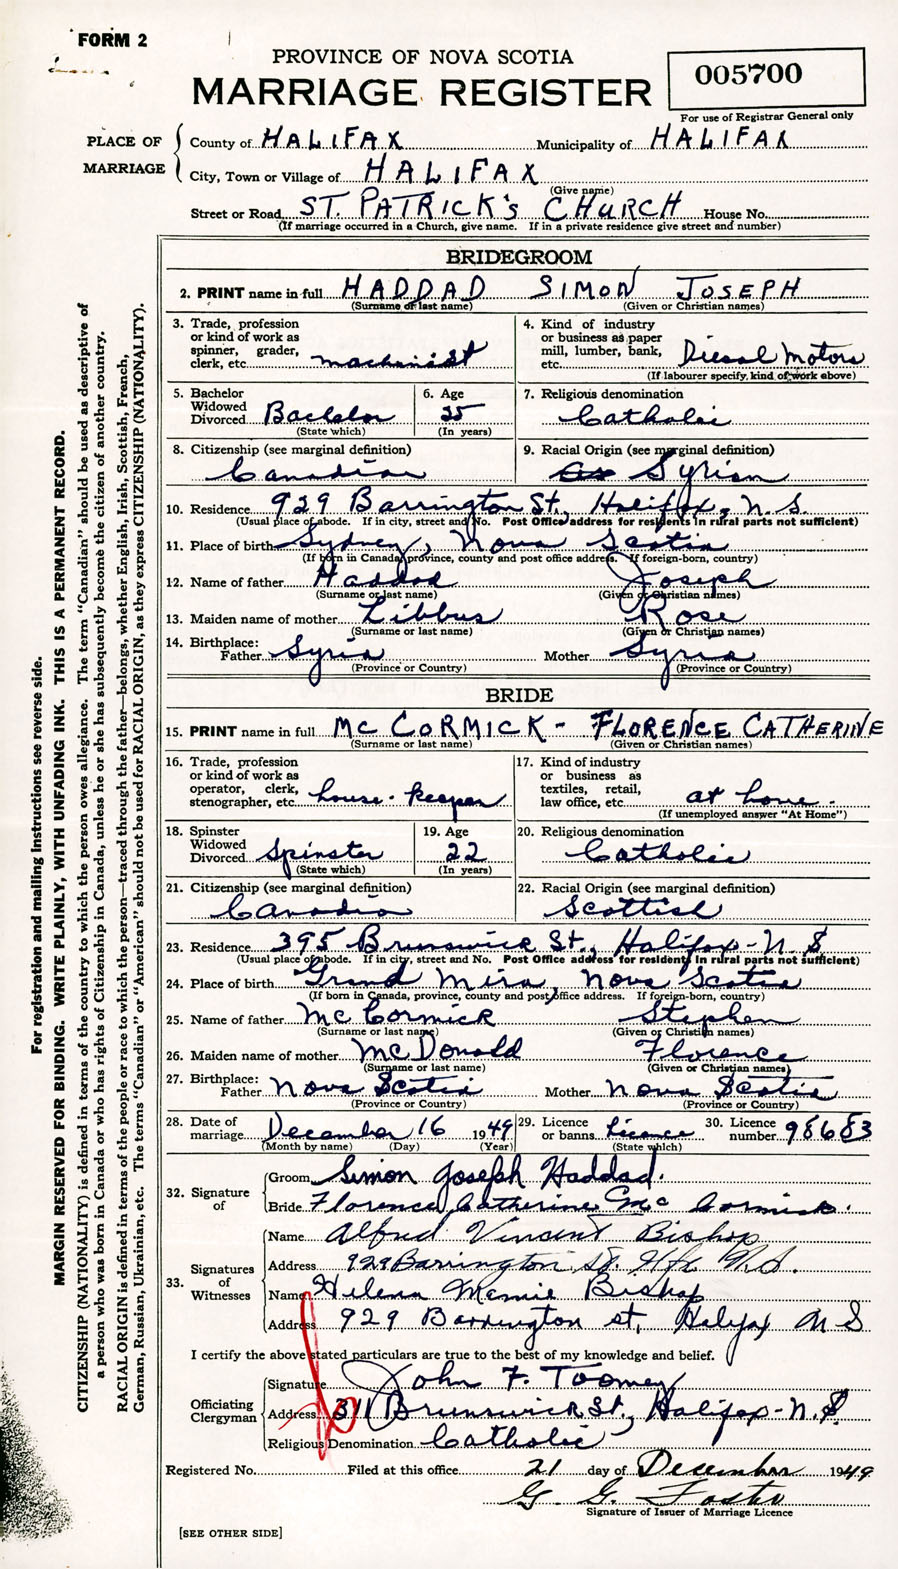 FORM 2
PROVINCE OF NOVA SCOTIA
MARRIAGE REGISTER
005700
For use of Registrar General only
PLACE OF MARRIAGE
County of HALIFAX Municipality of HALIFAX
City, Town or Village of HALIFAX
(Give name)
Street or Road ST. PATRICK'S CHURCH House No.
(If marriage occurred in a Church, give name. If in a private residence give street and number)
BRIDEGROOM
2. PRINT name in full HADDAD SIMON JOSEPH
(Surname or last name) (Given or Christian names)
3. Trade, profession or kind of work as spinner, grader, clerk, etc. machinist
4. Kind of industry or business as paper mill, lumber, bank, etc. Diesal Motors
(If labourer specify, kind of work above)
5. Bachelor Widowed Divorced Bachelor
(State which)
6. Age 25
(In years)
7. Religious denomination Catholic
8. Citizenship (see marginal definition) Canadian
9. Racial Origin (see marginal definition) Syrian
10. Residence 929 Barrington St., Halifax, N.S.
(Usual place of abode. If in city, street and No. Post Office address for residents in rural parts not sufficient)
11. Place of birth Sydney, Nova Scotia
(If born in Canada, province, county and post office address. If foreign-born, country)
12. Name of father Haddad Joseph
(Surname or last name) (Given or Christian names)
13. Maiden name of mother Libbus Rose
(Surname or last name) (Given or Christian names)
14. Birthplace: Father Syria Mother Syria
(Province or Country) (Province or Country)
BRIDE
15. PRINT name in full MC CORMICK - FLORENCE CATHERINE
(Surname or last name) (Given or Christian names)
16. Trade, profession or kind of work as operator, clerk, stenographer, etc. house-keeper
17. Kind of industry or business as textiles, retail, law office, etc. at home.
(If unemployed answer "At Home")
18. Spinster Widowed Divorced Spinster
(State which)
19. Age 22
(In years)
20. Religious denomination Catholic
21. Citizenship (see marginal definition) Canadian
22. Racial Origin (see marginal definition) Scottish
23. Residence 395 Brunswick St., Halifax-N.S
(Usual place of abode. If in city, street and No. Post Office address for residents in rural parts not sufficient)
24. Place of birth Grand Mira, Nova Scotia
(If born in Canada, province, county and post office address. If foreign-born, country)
25. Name of father McCormick Stephen
(Surname or last name) (Given or Christian names)
26. Maiden name of mother McDonald Florence
(Surname or last name) (Given or Christian names)
27. Birthplace: Father Nova Scotia Mother Nova Scotia
(Province or Country) (Province or Country)
28. Date of marriage December 16 1949
(Month by name) (Day) (Year)
29. Licence or banns Licence
(State which)
30. Licence number 98683
32. Signature of
Groom Simon Joseph Haddad.
Bride Florence Catherine McCormick.
33. Signatures of Witnesses
Name Alfred Vincent Bishop
Address 929 Barrington St. Hfx N.S.
Name Helena Mamie Bishop
Address 929 Barrington st, Halifax N S
I certify the above stated particulars are true to the best of my knowledge and belief.
Officiating Clergyman
Signature John F. Toomey
Address 311 Brunswick St., Halifax-N.S.
Religious Denomination Catholic
Registered No. Filed at this office 21 day of December 1949
G. G. Foster
Signature of Issuer of Marriage Licence
[SEE OTHER SIDE]
For registration and mailing instructions see reverse side.
MARGIN RESERVED FOR BINDING. WRITE PLAINLY, WITH UNFADING INK. THIS IS A PERMANENT RECORD.
CITIZENSHIP (NATIONALITY) is defined in terms of the country to which the person owes allegiance. The term "Canadian" should be used as descriptive of
a person who was born in Canada or who has rights of Citizenship in Canada, unless he or she has subsequently become the citizen of another country.
RACIAL ORIGIN is defined in terms of the people or race to which the person—traced through the father—belongs, whether English, Irish, Scottish, French,
German, Russian, Ukrainian, etc. The terms "Canadian" or "American" should not be used for RACIAL ORIGIN, as they express CITIZENSHIP (NATIONALITY).